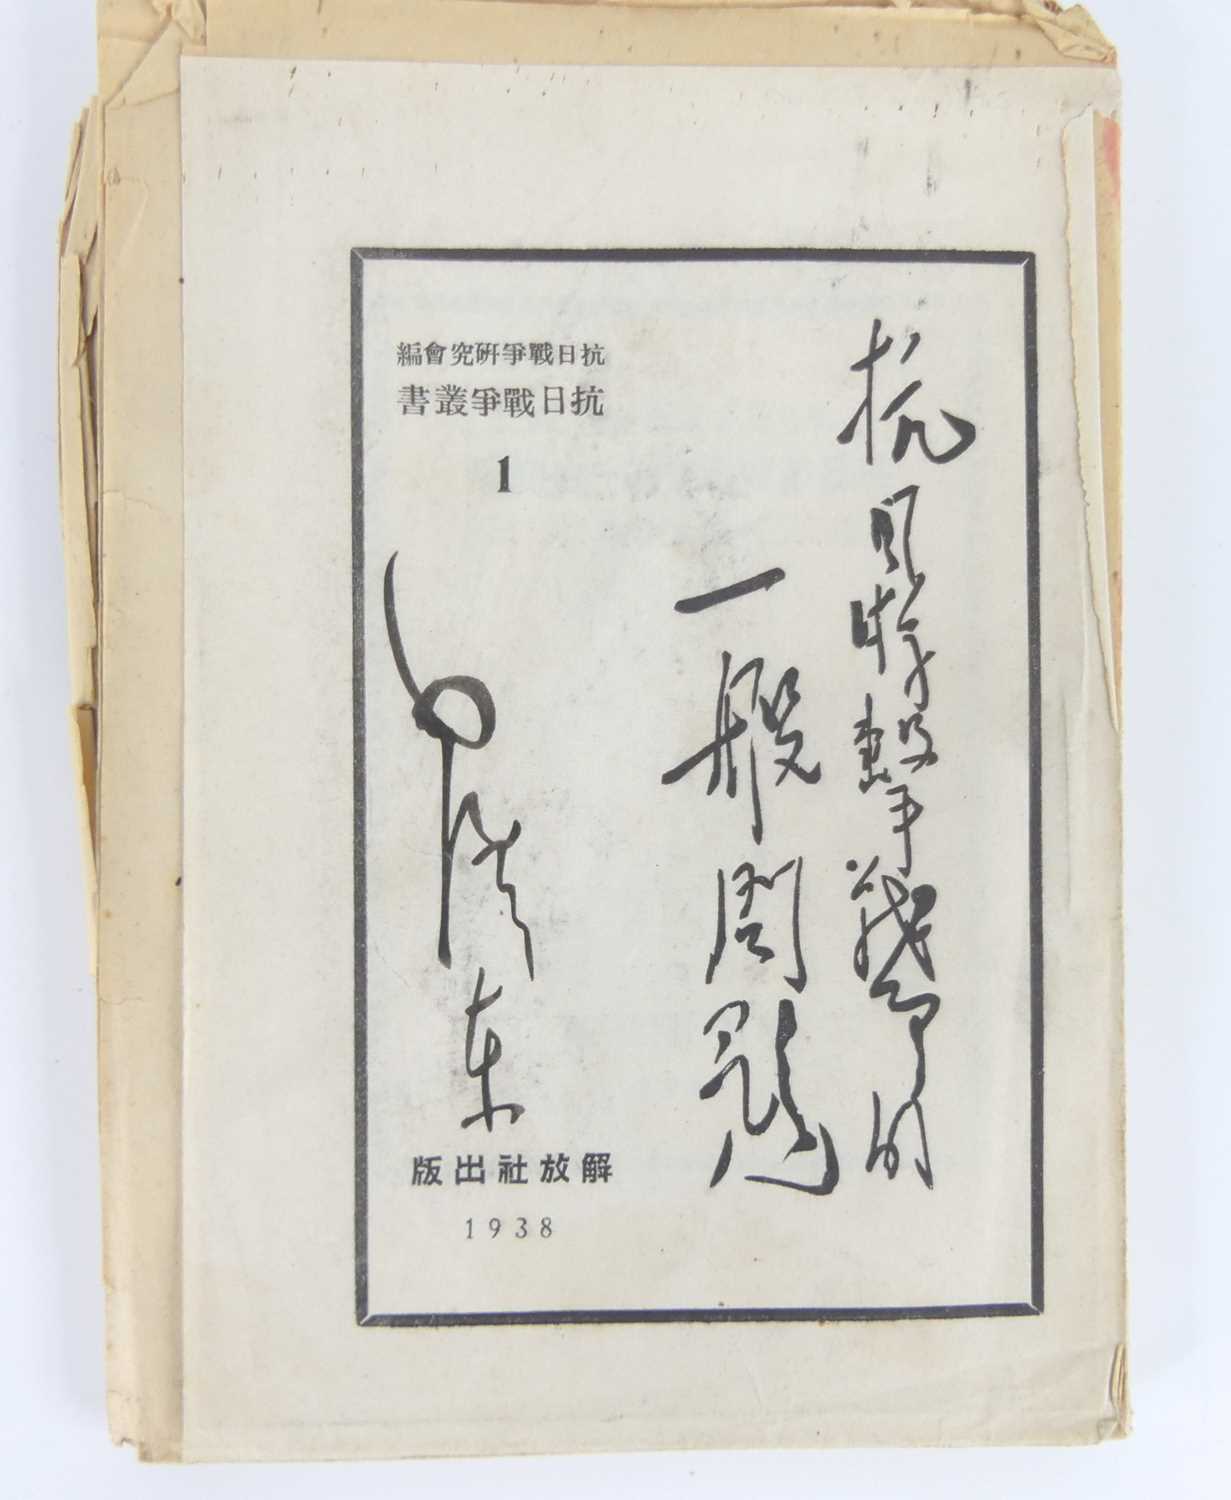 抗日游擊戰爭的
一般問題
抗日戰爭硏究會編
抗日戰爭叢書
1
毛澤東
解放社出版
1938